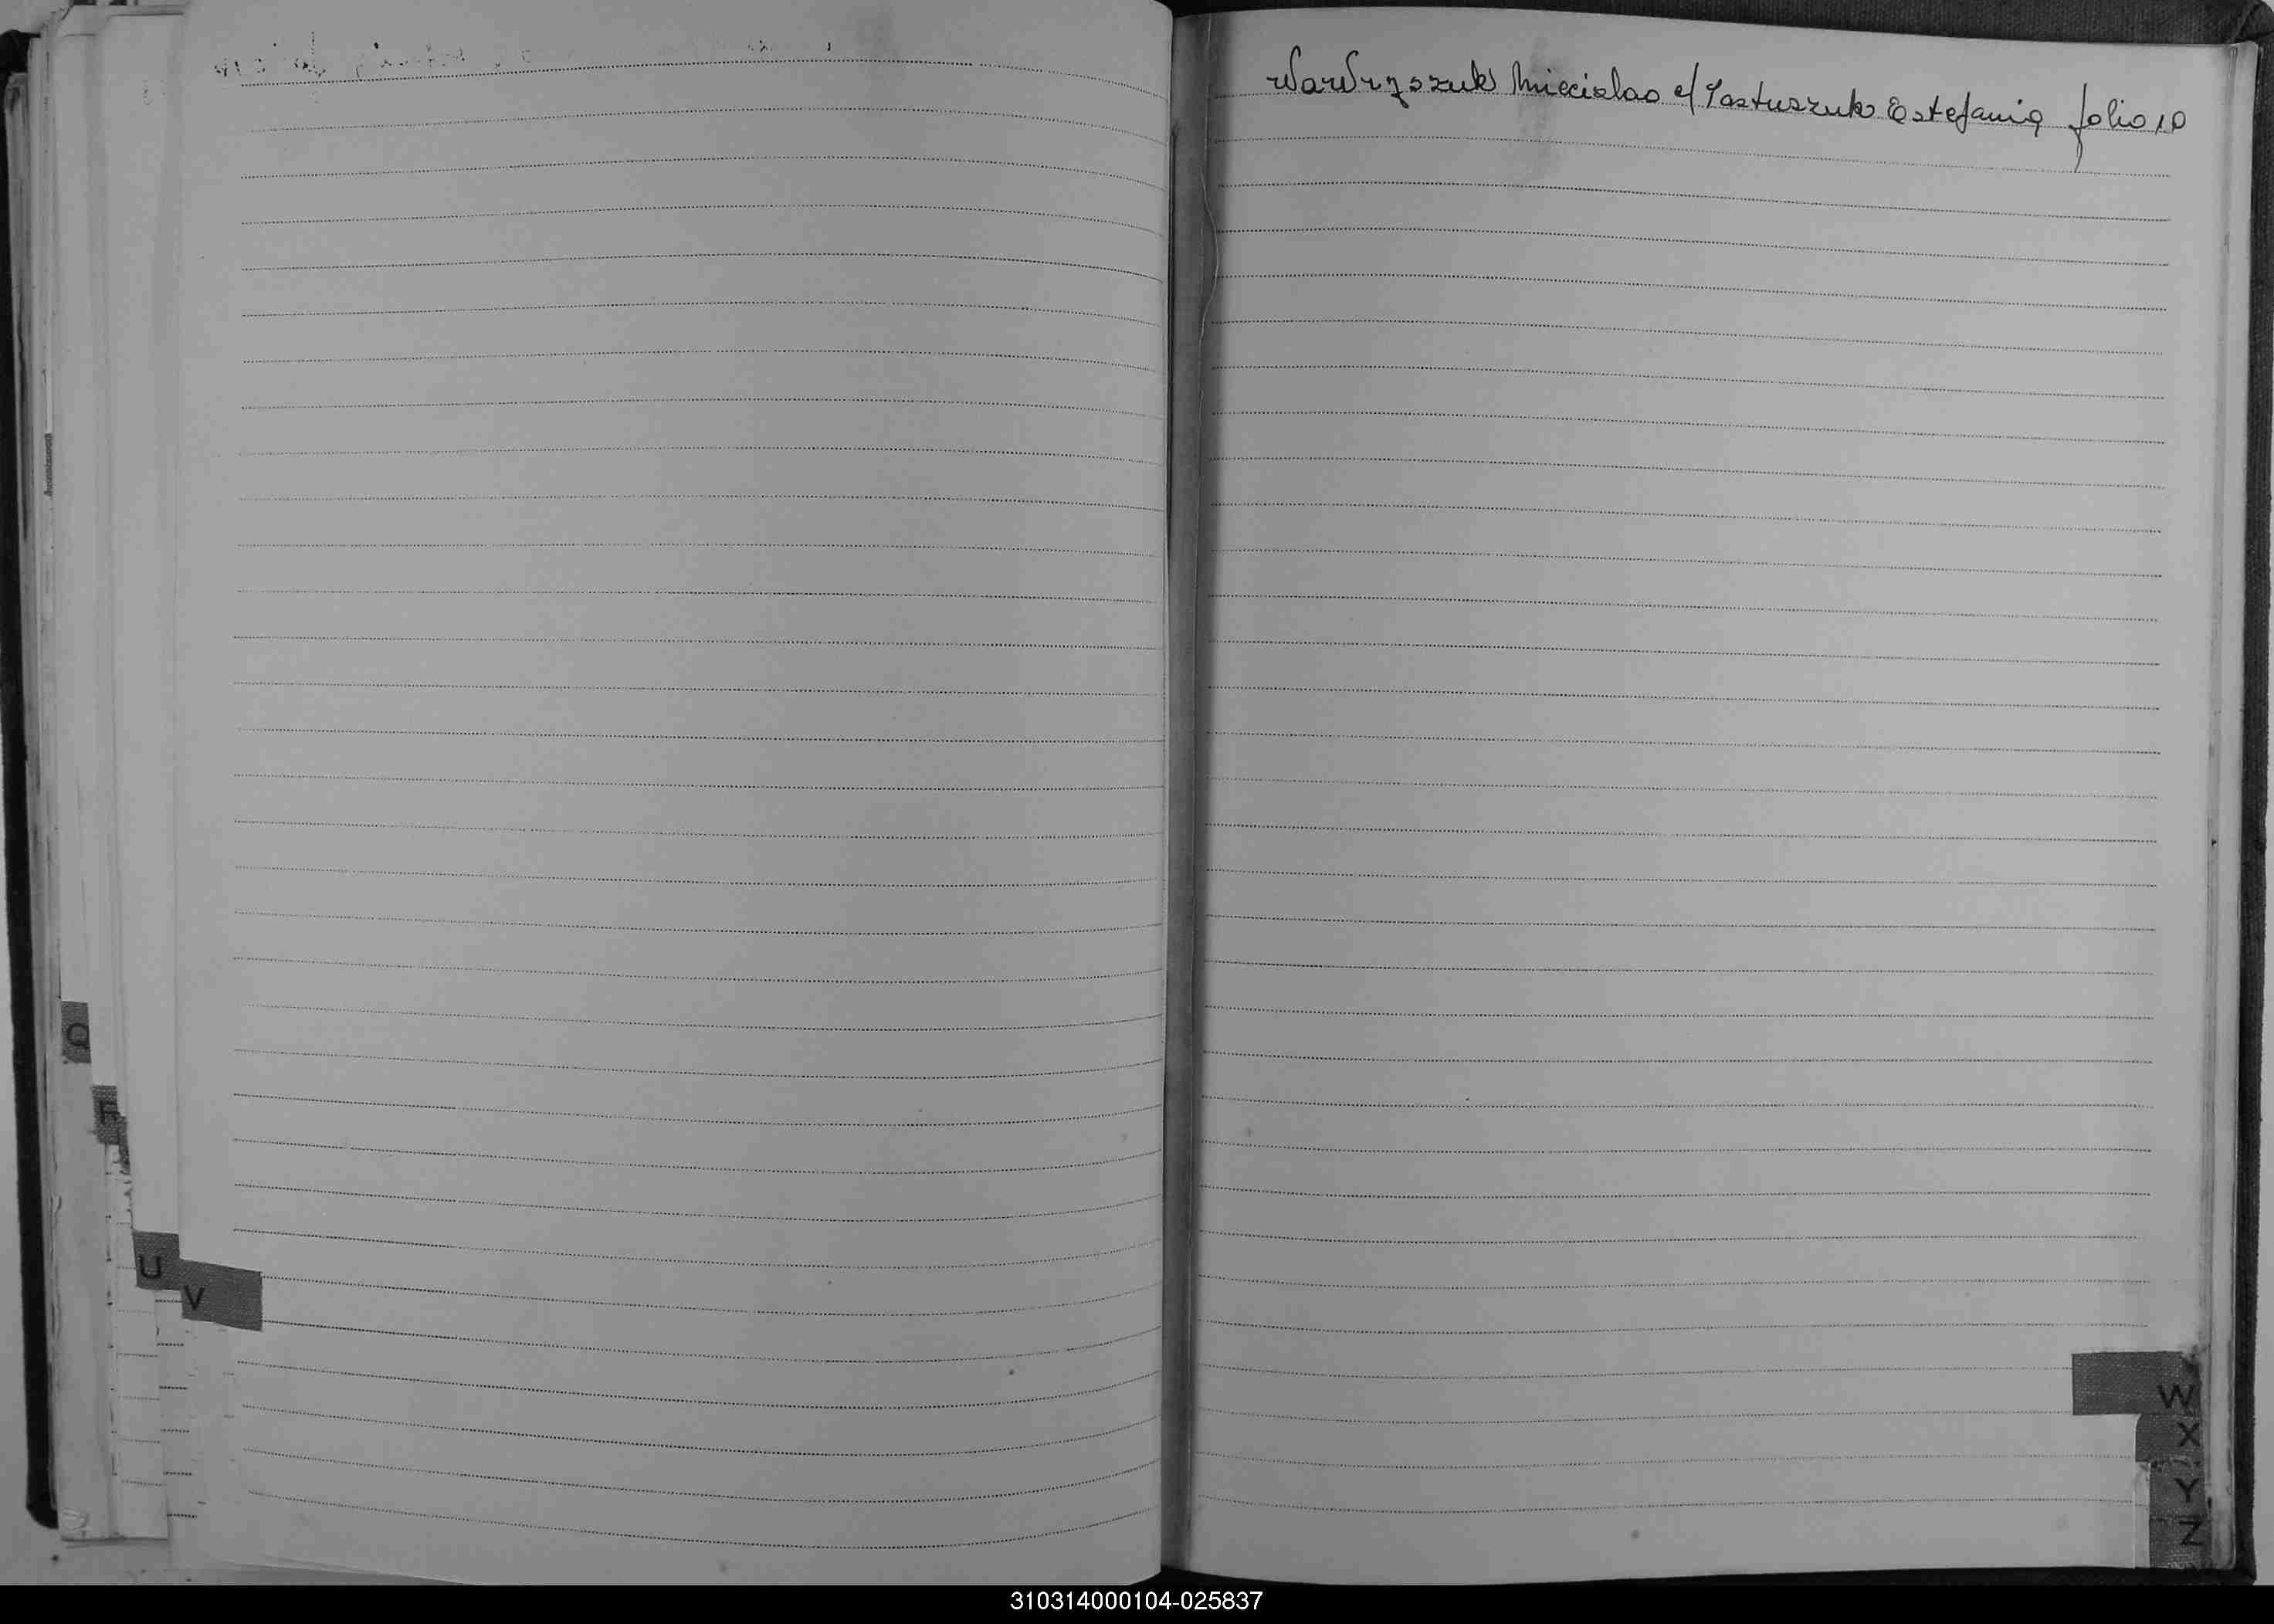 Wawrzszuk Miecislao c/ Pastuszuk Estefania folio 10
Q
R
U
V
W
X
Y
Z
310314000104-025837